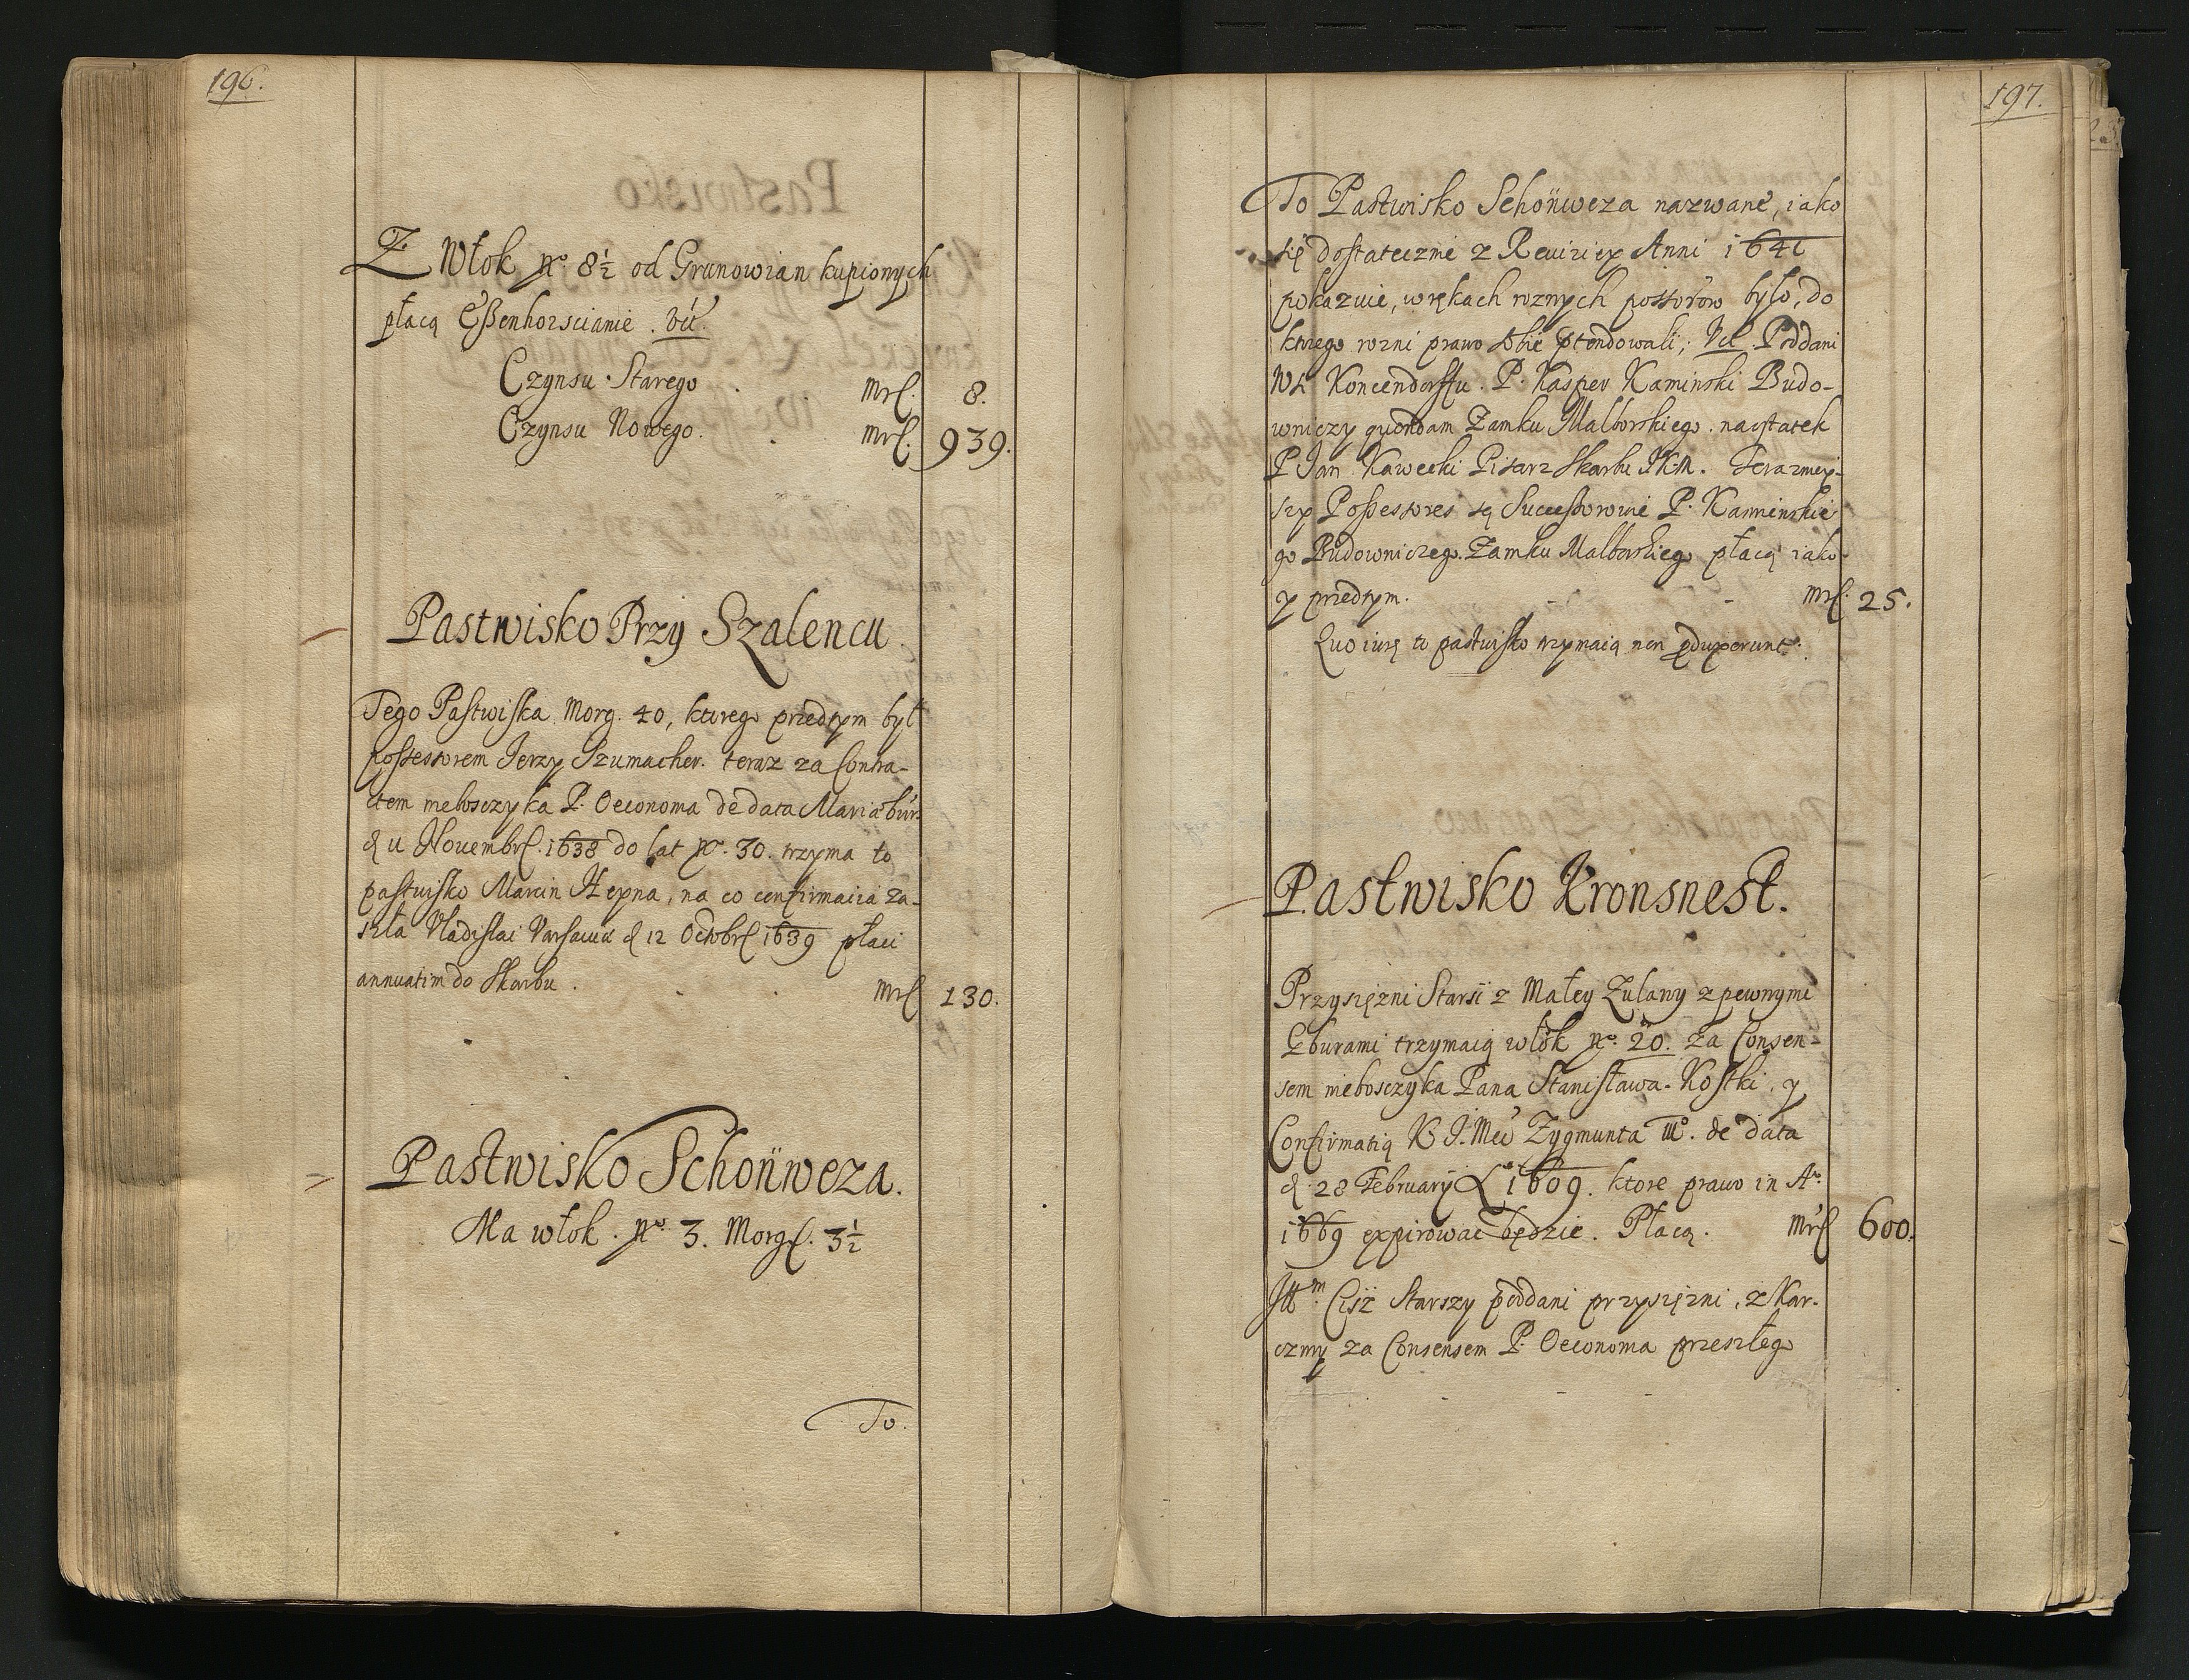 196.
Z Włok No 8½ od Grunowian kupionych
płacą Eßenhorscianie. vić.
Czynsu Starego . . Mrc. 8.
Czynsu Nowego. . Mrc. 939.
Pastwisko Przy Szalencu.
Tego Pastwiska Morg. 40, ktorego przedtym był
possessorem Jerzy Szumacher. teraz za Contra-
ctem nieboszczyka P. Oeconoma de data Mariæbur.
d. 11 Novembr. 1638 do lat No. 30. trzyma to
pastwisko Marcin Hepna, na co confirmacia za-
szła Vladislai Varsaviæ d. 12 Octobr. 1639 płaci
annuatim do Skarbu . . . Mrc. 130.
Pastwisko Schönweza.
Ma włok. No. 3. Morg. 3½
To.
197.
To Pastwisko Schönweza nazwane, iako
się dostatecznie z Reviziey Anni 1641
pokazuie, w rękach roznych possorów było, do
ktorego rozni prawo sobie ptendowali; Vel Poddani
WK Koncendorffu. P. Kasper Kaminski Budo-
wniczy quondam Zamku Malborskiego. naostatek
P Jan Kawecki Pisarz Skarbu JKM. Terazniey-
szy Possessores są Successorowie P. Kaminskie
go Budowniczego Zamku Malborskiego płacą iako
y przedtym. - - Mrc. 25.
Quo iurę to pastwisko trzymaią non pduxerunt.
Pastwisko Kronsnest.
Przysiężni Starsi z Małey Zuławy z pewnymi
Gburami trzymaią włók No. 20. za Consen-
sem nieboszczyka Pana Stanisława Kostki, y
Confirmatią K J. Mći Zygmunta IIIo. de data
d. 28 February A 1609. ktore prawo in Ao.
1669 expirować będzie. Płacą. Mrc. 600.
Ittm. Ciż Starszy poddani przysiężni, z Kar-
czmy za Consensem P. Oeconoma przeszłego